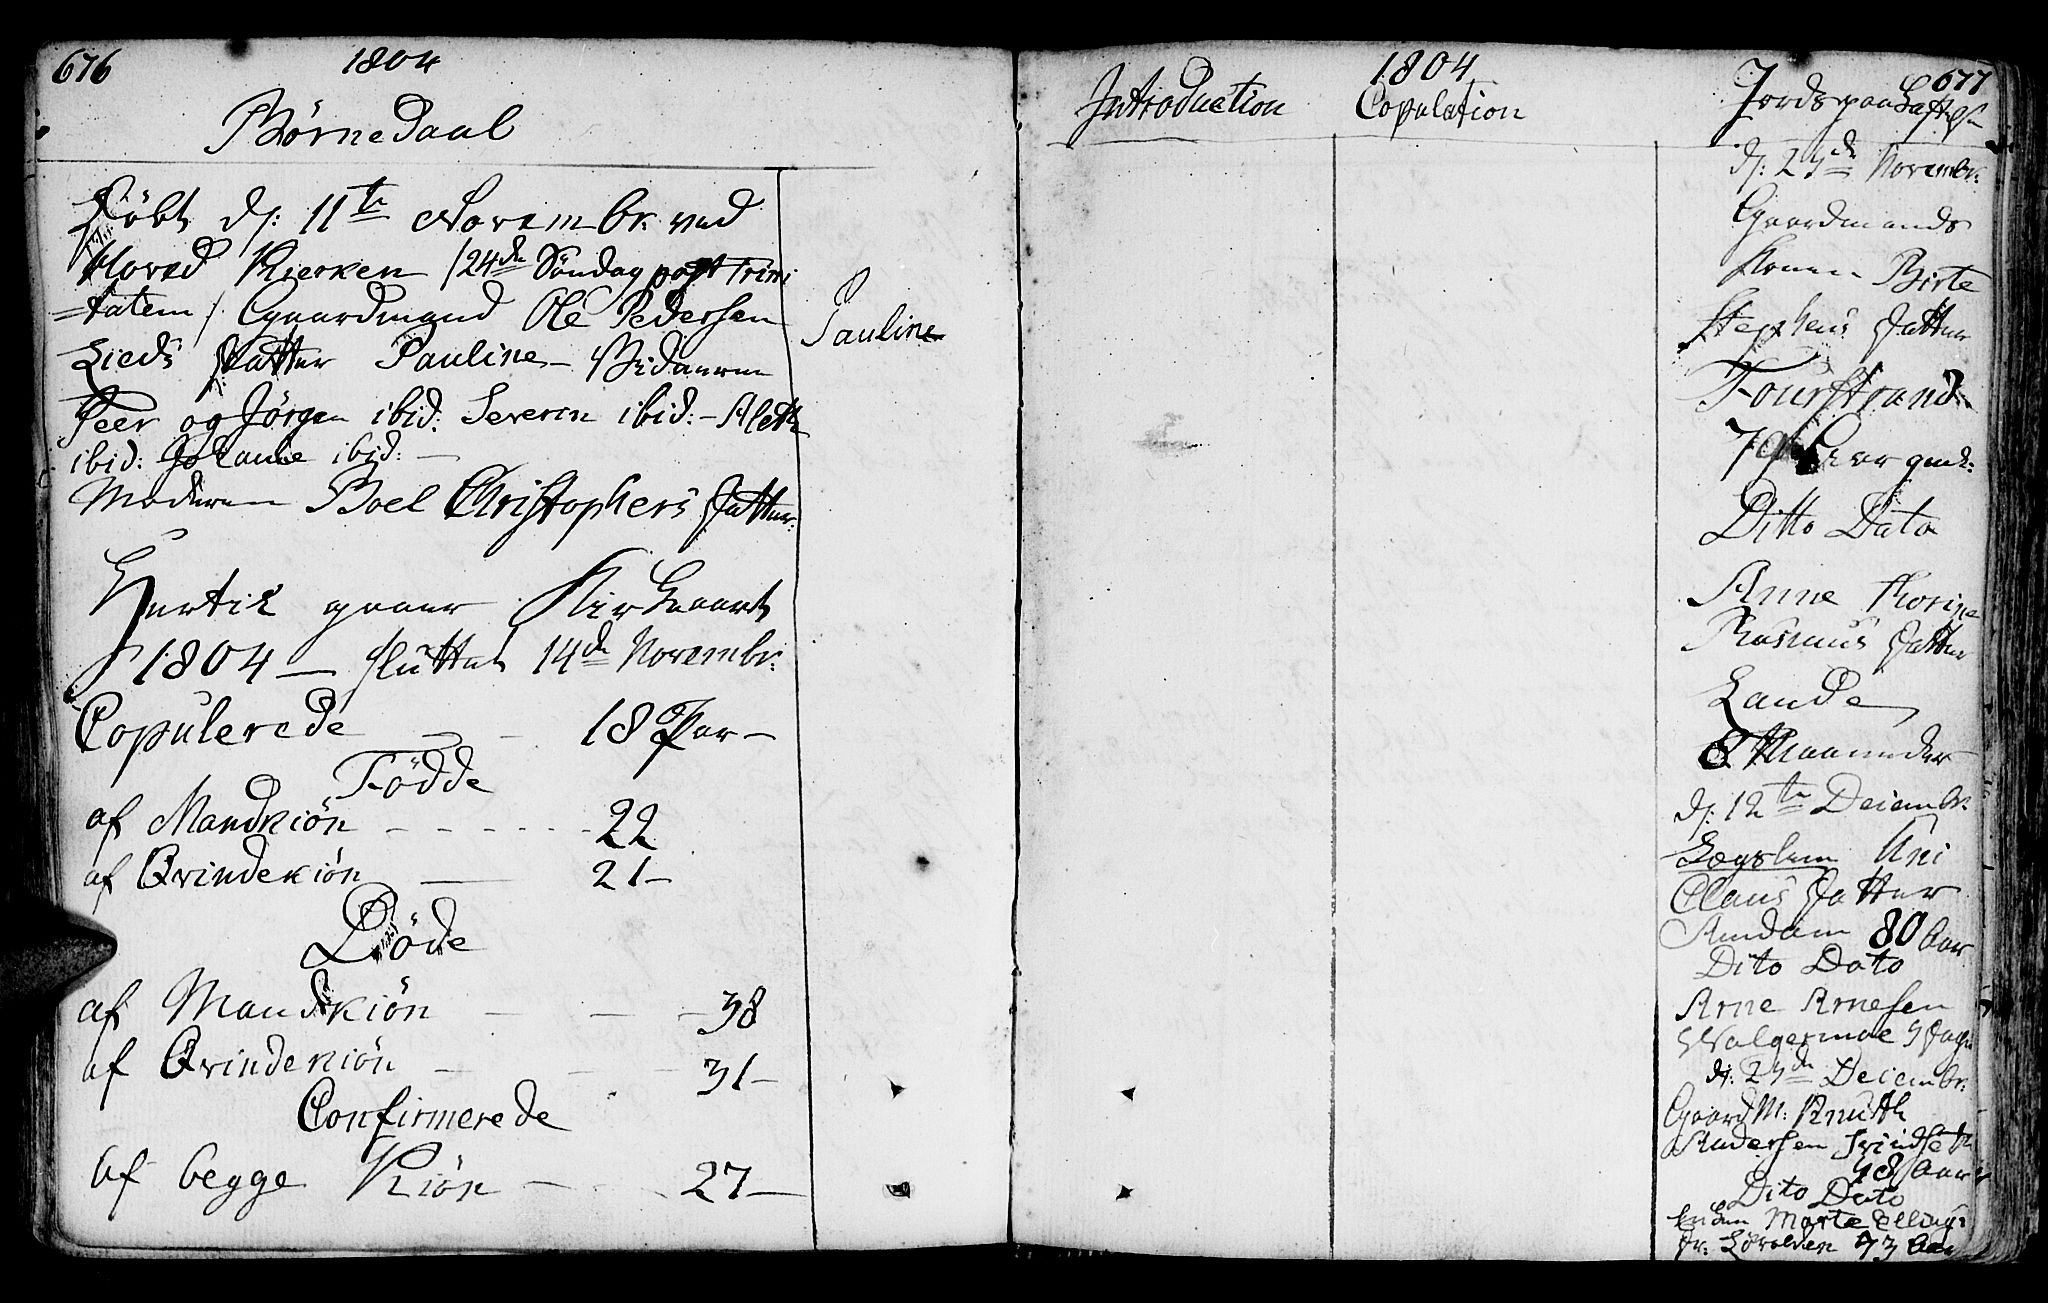 676
1804
Børnedaab
Døbt d: 11te Novembr: ved
Hoved Kierken /24de Søndag post Trini
=tatem/ Gaardmand Ole Pedersen
Lieds Datter Pauline -
Peer og Jørgen ibid: Severin ibid: - Aleth
ibid: Johanne ibid: -
Moderen Boel Christophers Datter:
Pauline
Hertil gaaer Kirkeaaret
1804 - sluttet 14de Novembr:
Copulerede - - 18 Par -
Fødde
af Mandkiön - - - - - - 22
af Qvindekiön - 21 -
Døde
af Mandkiön - - - 38
af Qvindekiön - - - 31 -
Confirmerede
af begge Kiön - - 27 -
1804
677
Introduction
Copulation
Jordspaa
Novembr:
Gaardmands
Konen Birte
Stephens Datter
Fourstrand
79 Aar gml:
Ditto Dato
Anne Thorine
Rasmus Datter
Lande
8 Maaneder
d: 12te Decembr:
Lægslem Uni
Claus Datter
80 Aar
Dito Dato
Arne Arnesen
d: Decembr:
Gaard M: Knuth
Andersen
48 Aar
Dito Dato
Marte Ellings
73 Aar